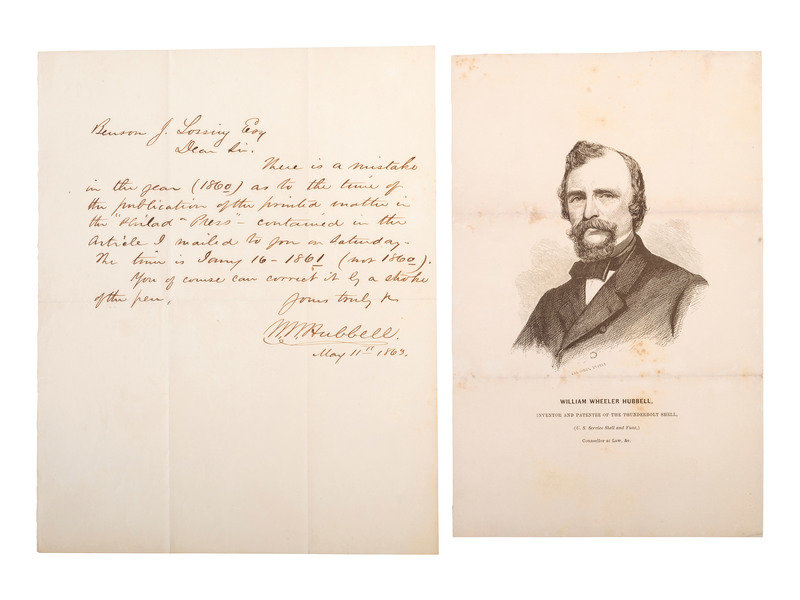 Benson J. Lossing Esq
Dear Sir.
There is a mistake
in the year (1860) as to the time of
the publication of the printed matter in
the "Philad" Press" - contained in the
Article I mailed to you on Saturday -
The time is Jany 16 - 1861 (not 1860).
You of course can correct it by a stroke
of the pen,
Yours truly &c
W. W. Hubbell.
May 11th 1863.
WILLIAM WHEELER HUBBELL,
INVENTOR AND PATENTEE OF THE THUNDERBOLT SHELL,
(U. S. Service Shell and Fuse,)
Counsellor at Law, &c.